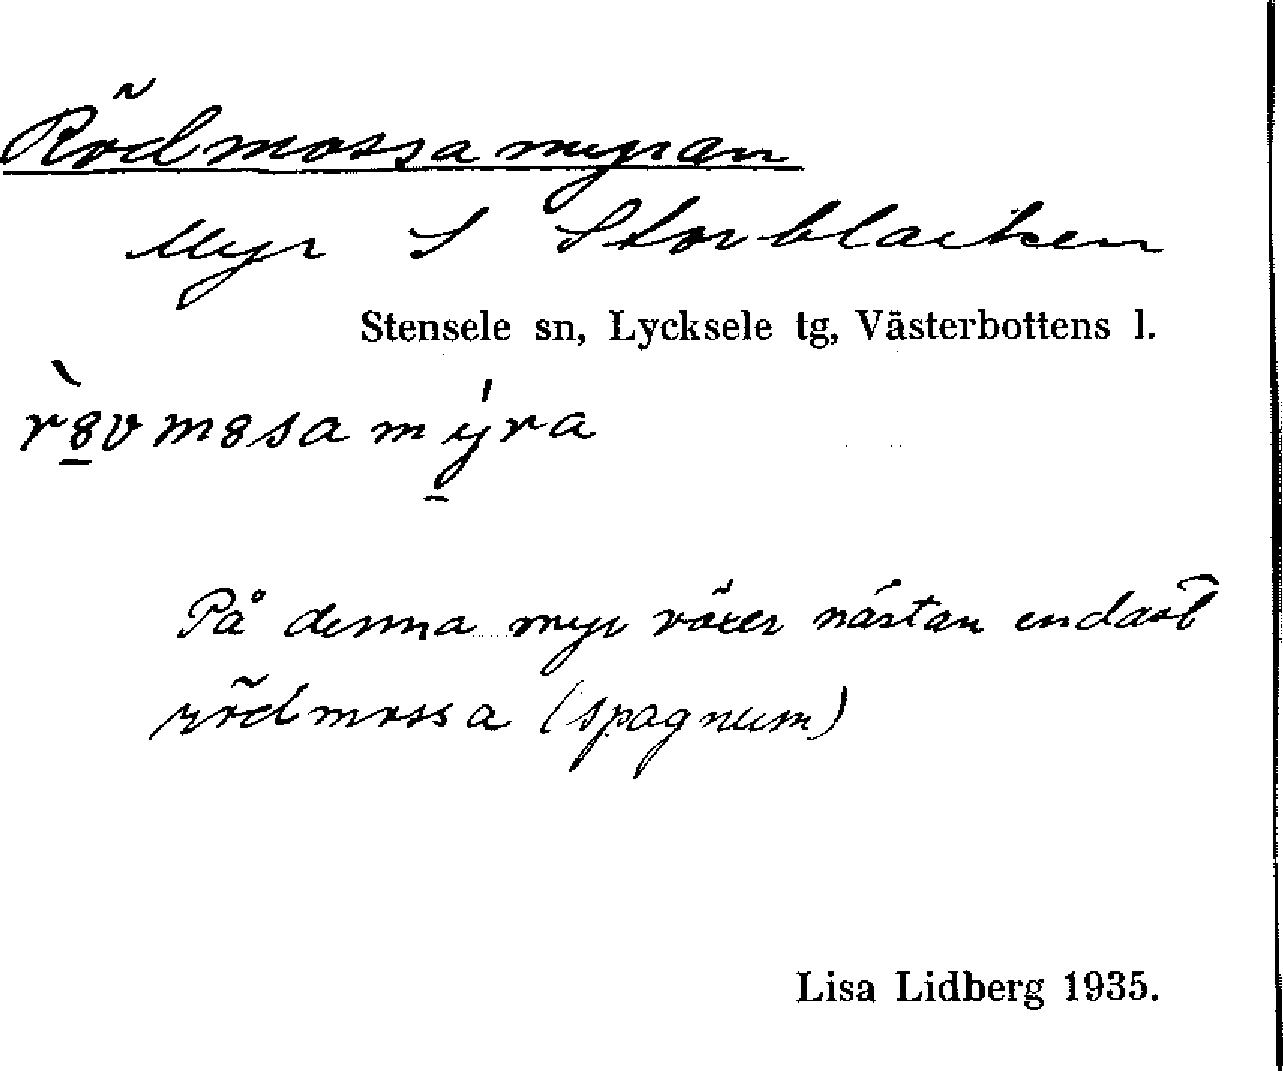 Rödmossamyran
Myr S Storblaiken
Stensele sn, Lycksele tg, Västerbottens l.
rövmosamyra
På denna myr växer nästan endast
rödmossa (spagnum)
Lisa Lidberg 1935.